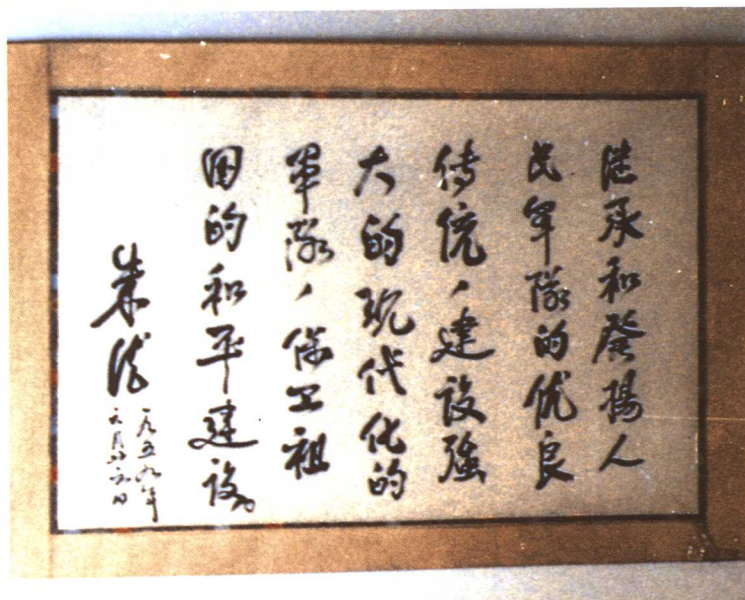 继承和發揚人
民军隊的优良
传统、建设強
大的现代化的
军隊、保卫祖
国的和平建设。
朱德
一九五九年
六月廿六日